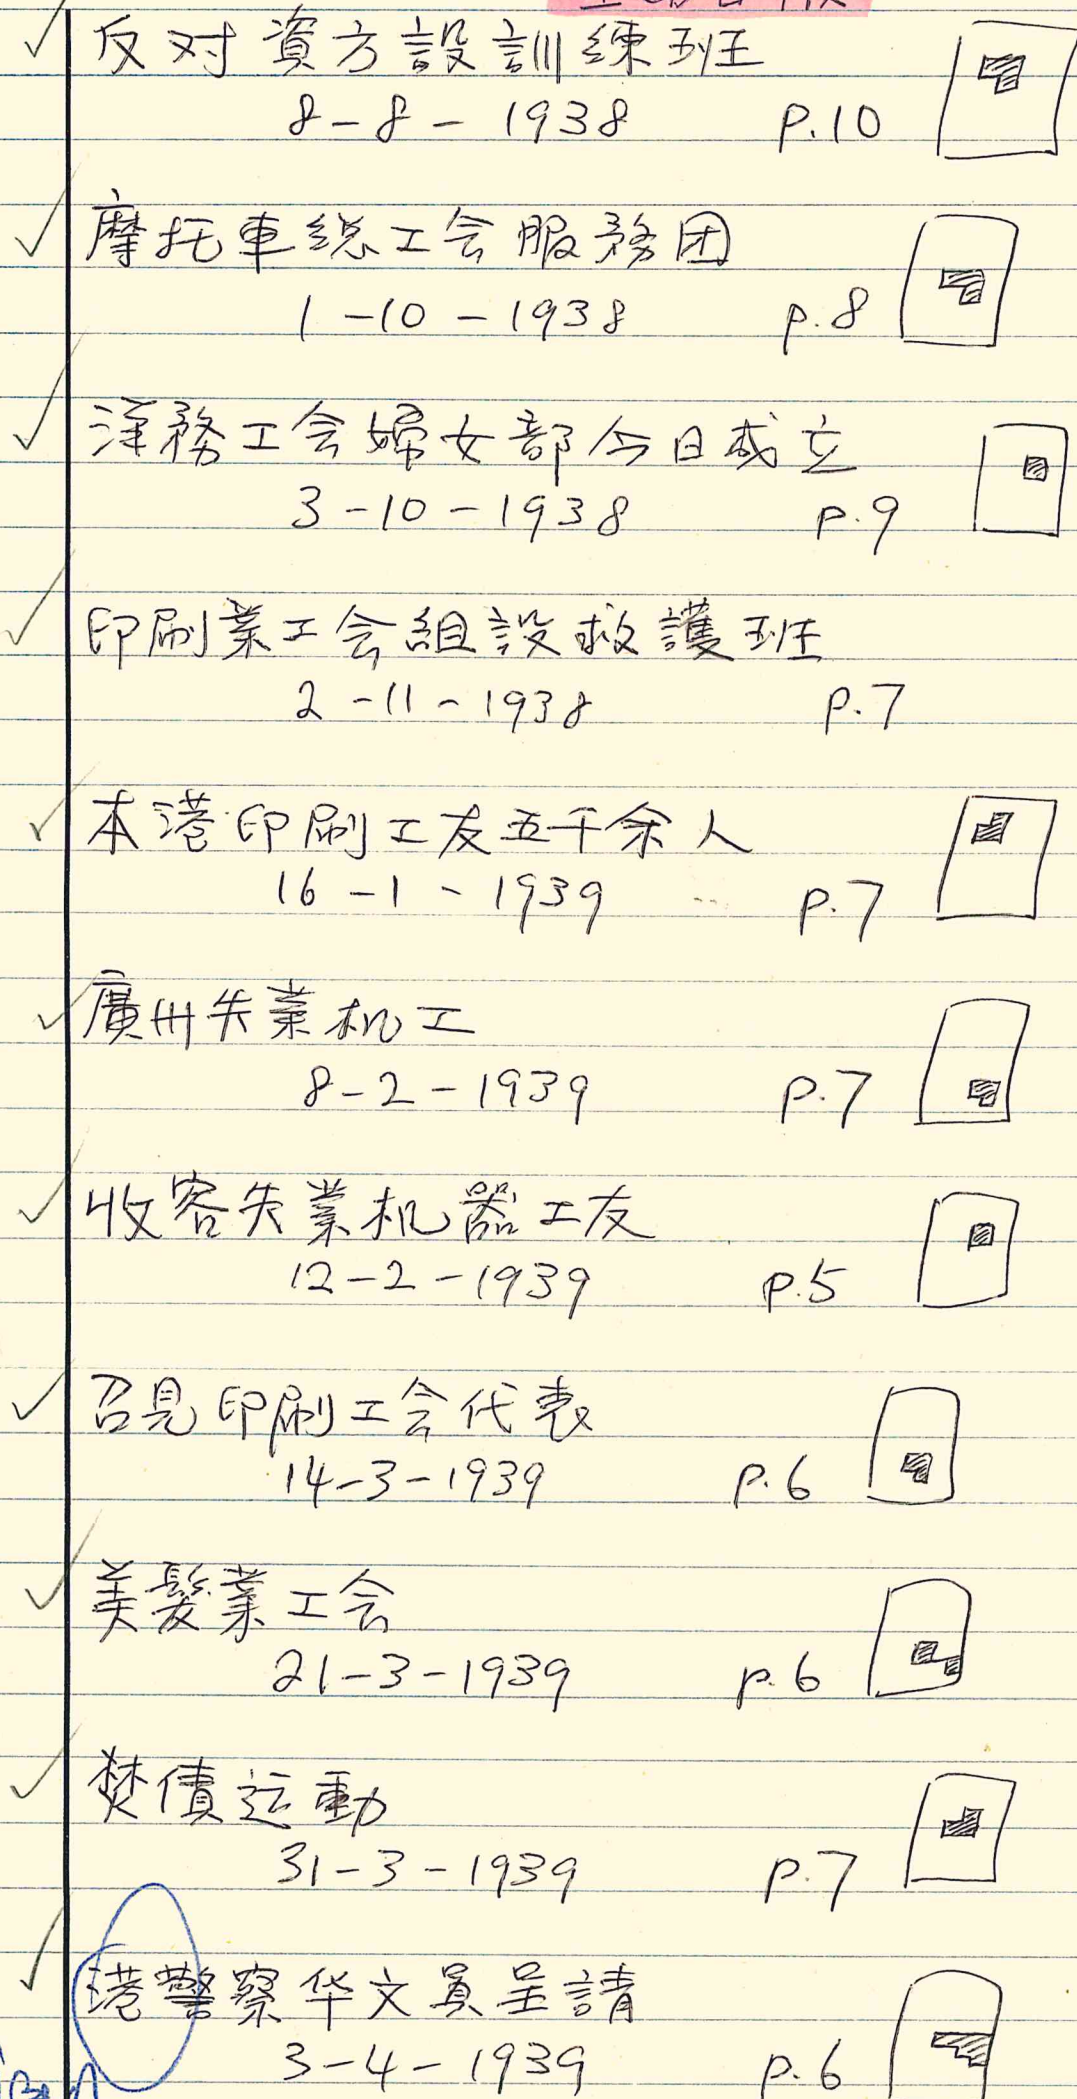 反对資方設訓練班
8-8-1938 p.10
摩托車総工会服務团
1-10-1938 p.8
洋務工会婦女部今日成立
3-10-1938 p.9
印刷業工会組設救護班
2-11-1938 p.7
本港印刷工友五千余人
16-1-1939 p.7
廣州失業机工
8-2-1939 p.7
收容失業机器工友
12-2-1939 p.5
召見印刷工会代表
14-3-1939 p.6
美髮業工会
21-3-1939 p.6
焚債运動
31-3-1939 p.7
港警察华文員呈請
3-4-1939 p.6